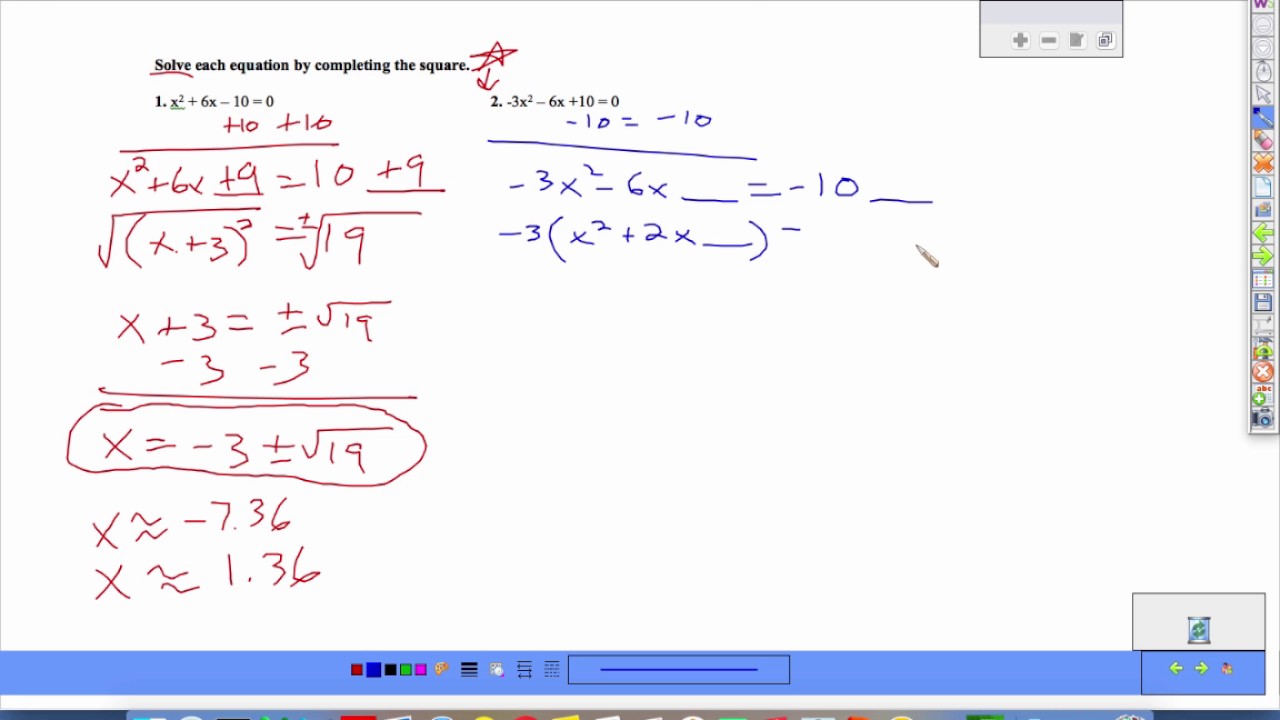 Solve each equation by completing the square.
1. x² + 6x – 10 = 0
+10 +10
x² + 6x +9 = 10 +9
√(x + 3)² = ±√19
x + 3 = ±√19
-3 -3
x = -3 ± √19
x ≈ -7.36
x ≈ 1.36
2. -3x² – 6x +10 = 0
-10 = -10
-3x² - 6x ___ = -10 ___
-3(x² + 2x ___) -
abc